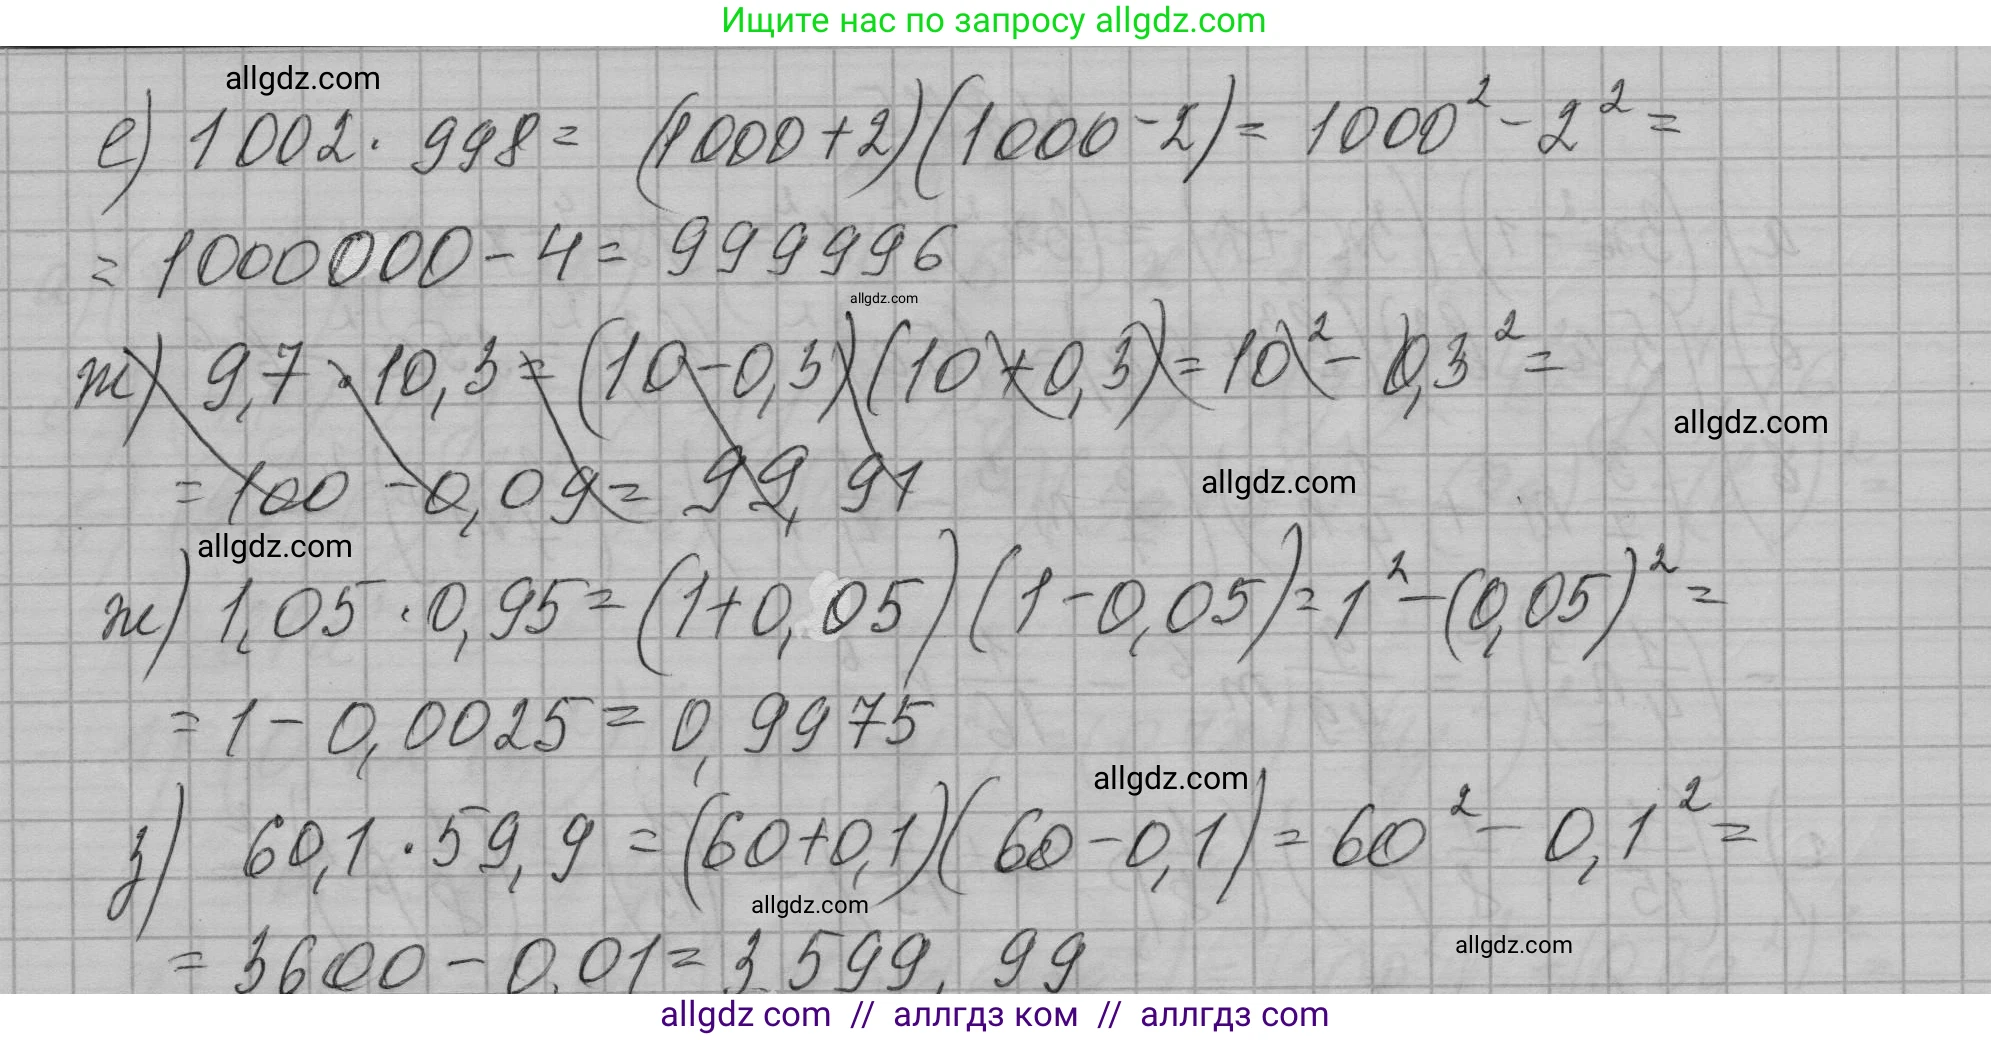 Ищите нас по запросу allgdz.com
allgdz.com
е) 1002 · 998 = (1000 + 2)(1000 - 2) = 1000² - 2² =
= 1000000 - 4 = 999996
allgdz.com
ж) 9,7 · 10,3 = (10 - 0,3)(10 + 0,3) = 10² - 0,3² =
allgdz.com
= 100 - 0,09 = 99,91
allgdz.com
allgdz.com
ж) 1,05 · 0,95 = (1 + 0,05)(1 - 0,05) = 1² - (0,05)² =
= 1 - 0,0025 = 0,9975
allgdz.com
з) 60,1 · 59,9 = (60 + 0,1)(60 - 0,1) = 60² - 0,1² =
allgdz.com
allgdz.com
= 3600 - 0,01 = 3599,99
allgdz com // аллгдз ком // аллгдз com